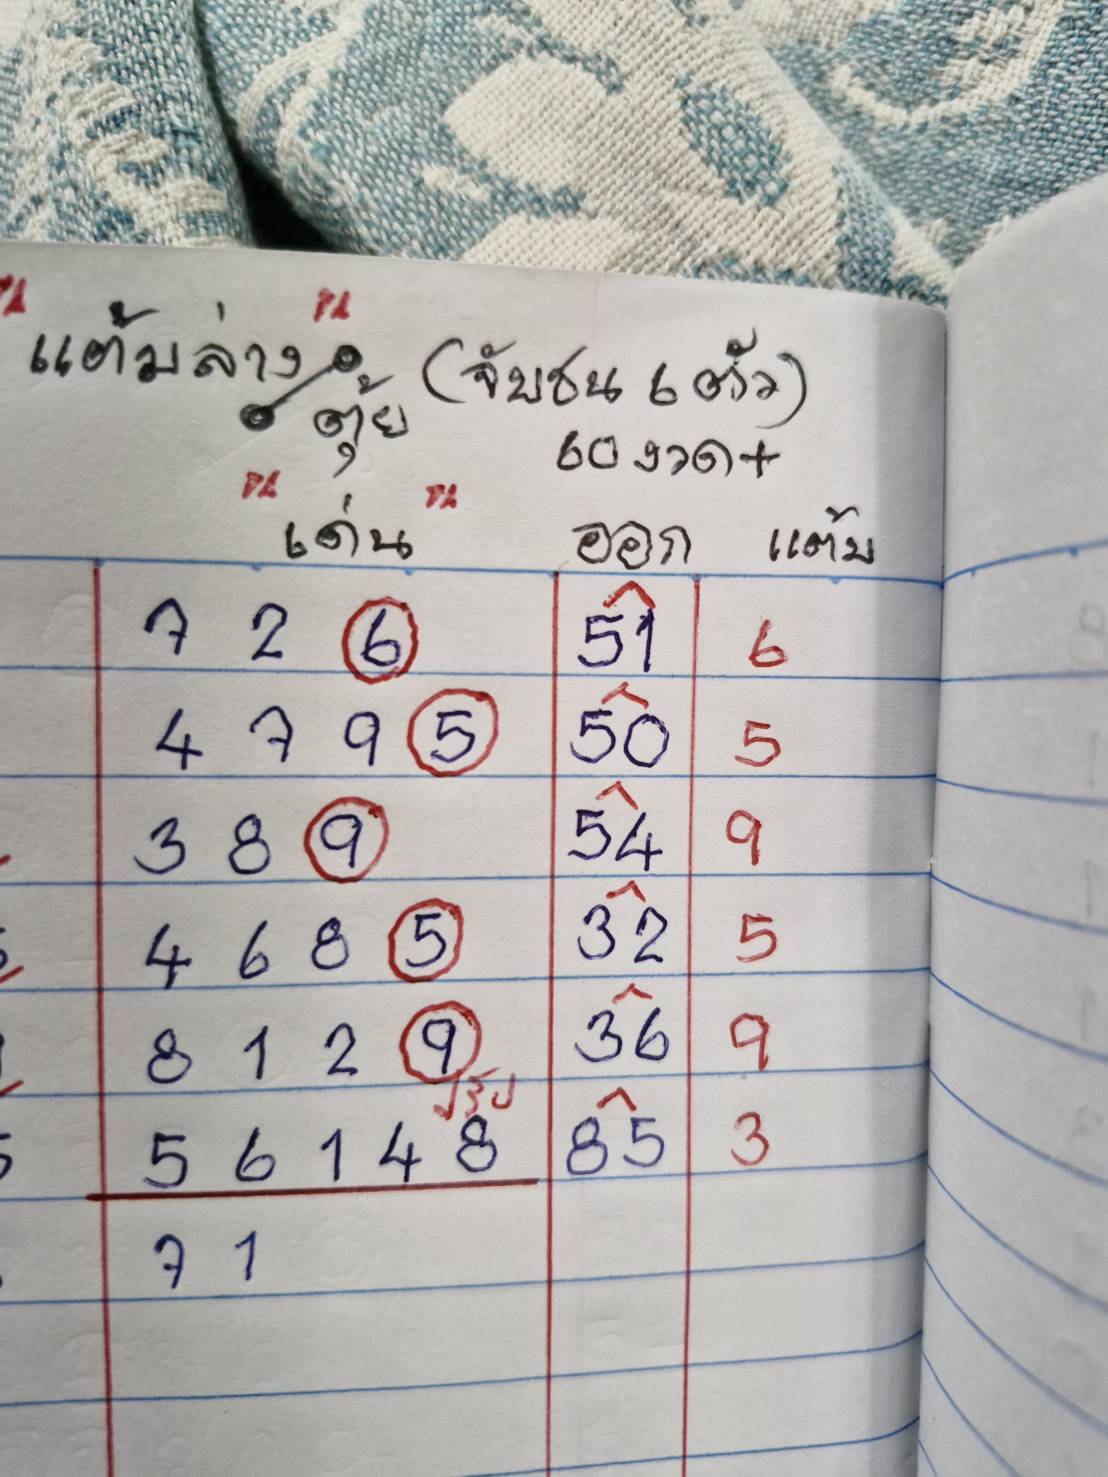 แต้มล่าง (จับชน 6 ตัว)
ตุ้ย 60 งวด+
เด่น ออก แต้ม
7 2 6 51 6
4 7 9 5 50 5
3 8 9 54 9
4 6 8 5 32 5
8 1 2 9 36 9
5 6 1 4 8 85 3
7 1